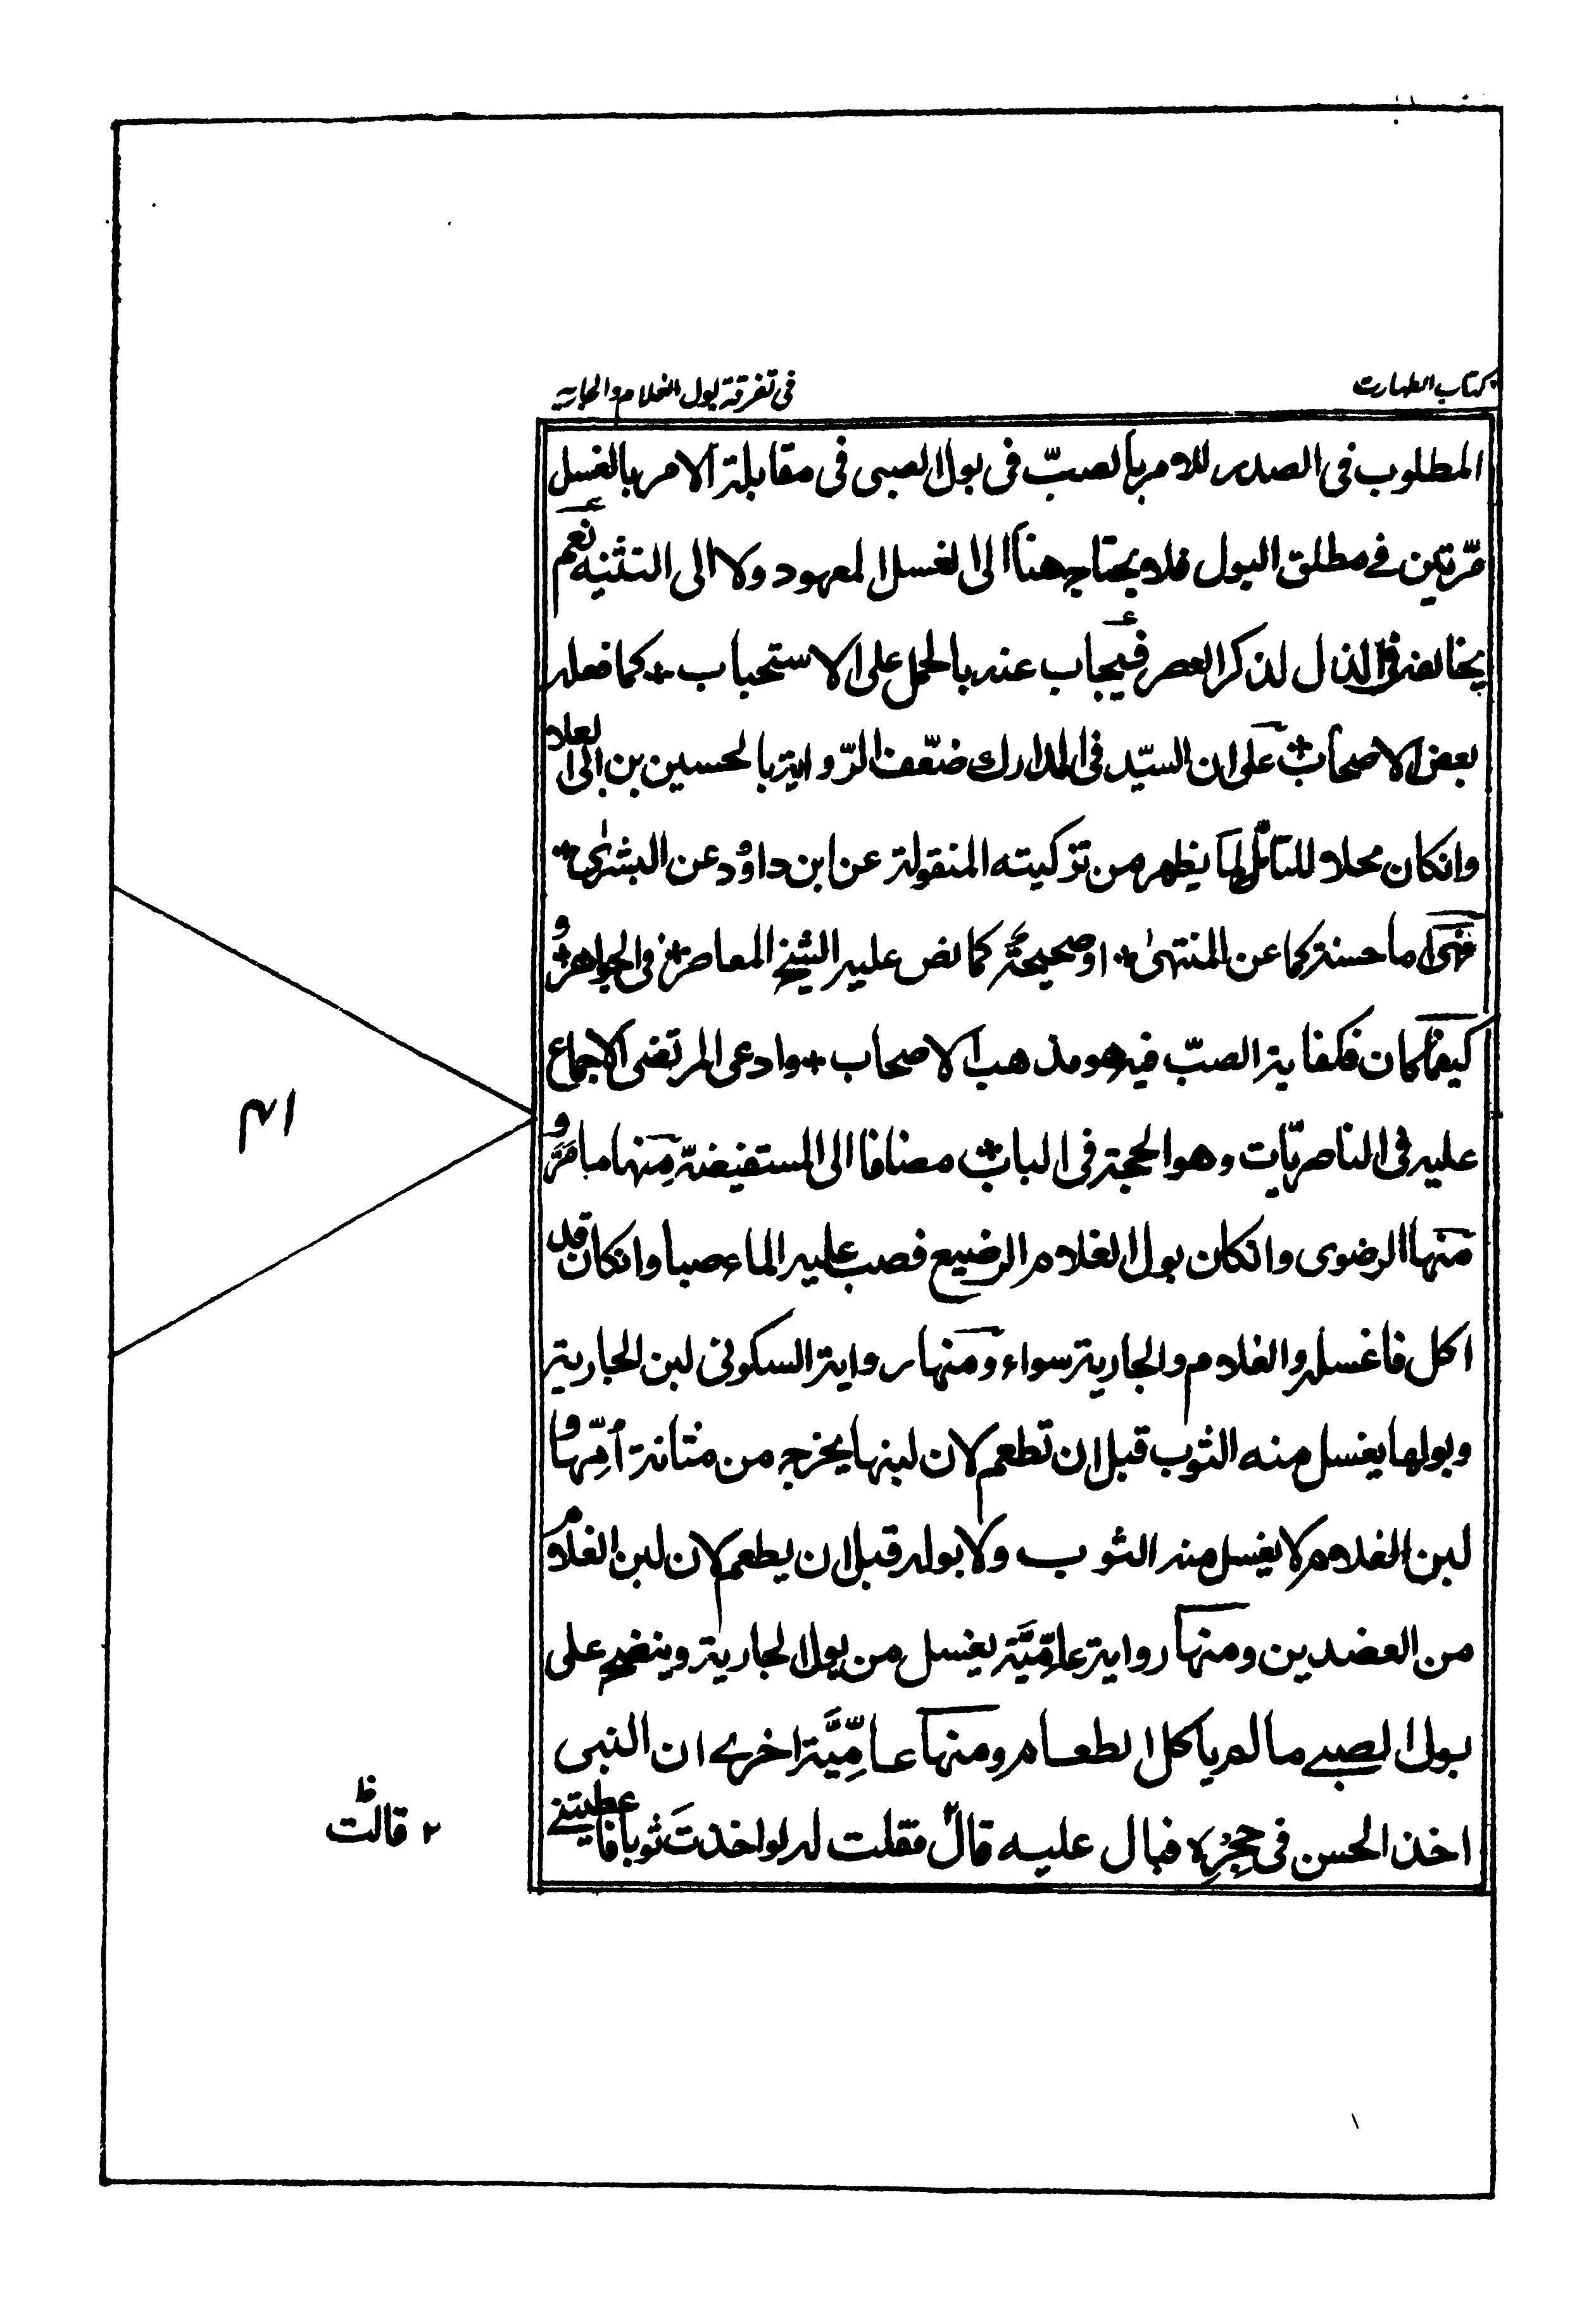 كتاب الطهارت
فى تفرقة بول الغلام والجاريه
المطلوب فى الصدر للامر بالصبّ فى بول الصبى فى مقابلة الامر بالغسل
مرّتين فے مطلق البول فلا يحتاج هنا الى الغسل المعهود ولا الى التثنيه نعم
يخالفه فى الذيل لذكر العصر فيجاب عنه بالحمل على الاستحباب كما فعله
بعض الاصحاب على ان السيّد فى المدارك ضعّف الرّواية بالحسين بن ابى العلا
وانكان محلا للتامّل لما يظهر من تزكيته المنقولة عن ابن داؤد عن البشرىٰ
فهى اما حسنة كما عن المنتهىٰ او صحيحة كما نص عليه الشيخ المعاصر فى الجواهر و
كيفما كان فكفاية الصبّ فيه هو مذهب الاصحاب وادعى المرتضى الاجماع
عليه فى الناصريّات وهو الحجة فى الباب مضافا الى المستفيضة مِنها ما مَرَّ و
منها الرضوى وانكان بول الغلام الرضيع فصب عليه الماء صبا وانكان قد
اكل فاغسله والغلام والجارية سواء ومنها رواية السكونى لبن الجارية
وبولها يغسل منه الثوب قبل ان تطعم لان لبنها يخرج من مثانة اُمِّها و
لبن الغلام لا يغسل منه الثوب ولا بوله قبل ان يطعم لان لبن الغلام
من العضدين ومنها رواية عامِّيَّة يغسل من بول الجارية وينضح على
بول الصبے ما لم يا كل الطعام ومنها عامِّيَّة اخرے ان النبى
اخذ الحسن فى حِجْرِه فبال عليه قال٢ فقلت له لو اخذتَ ثوبا فاعطيتنے
٢ قالت ظ
٤١